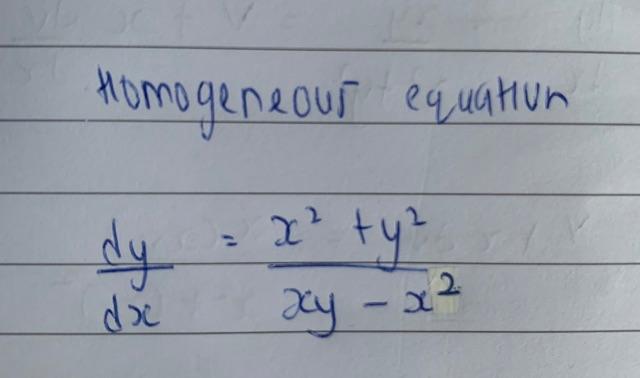 Homogeneous equation
dy/dx = x² + y² / xy - x²